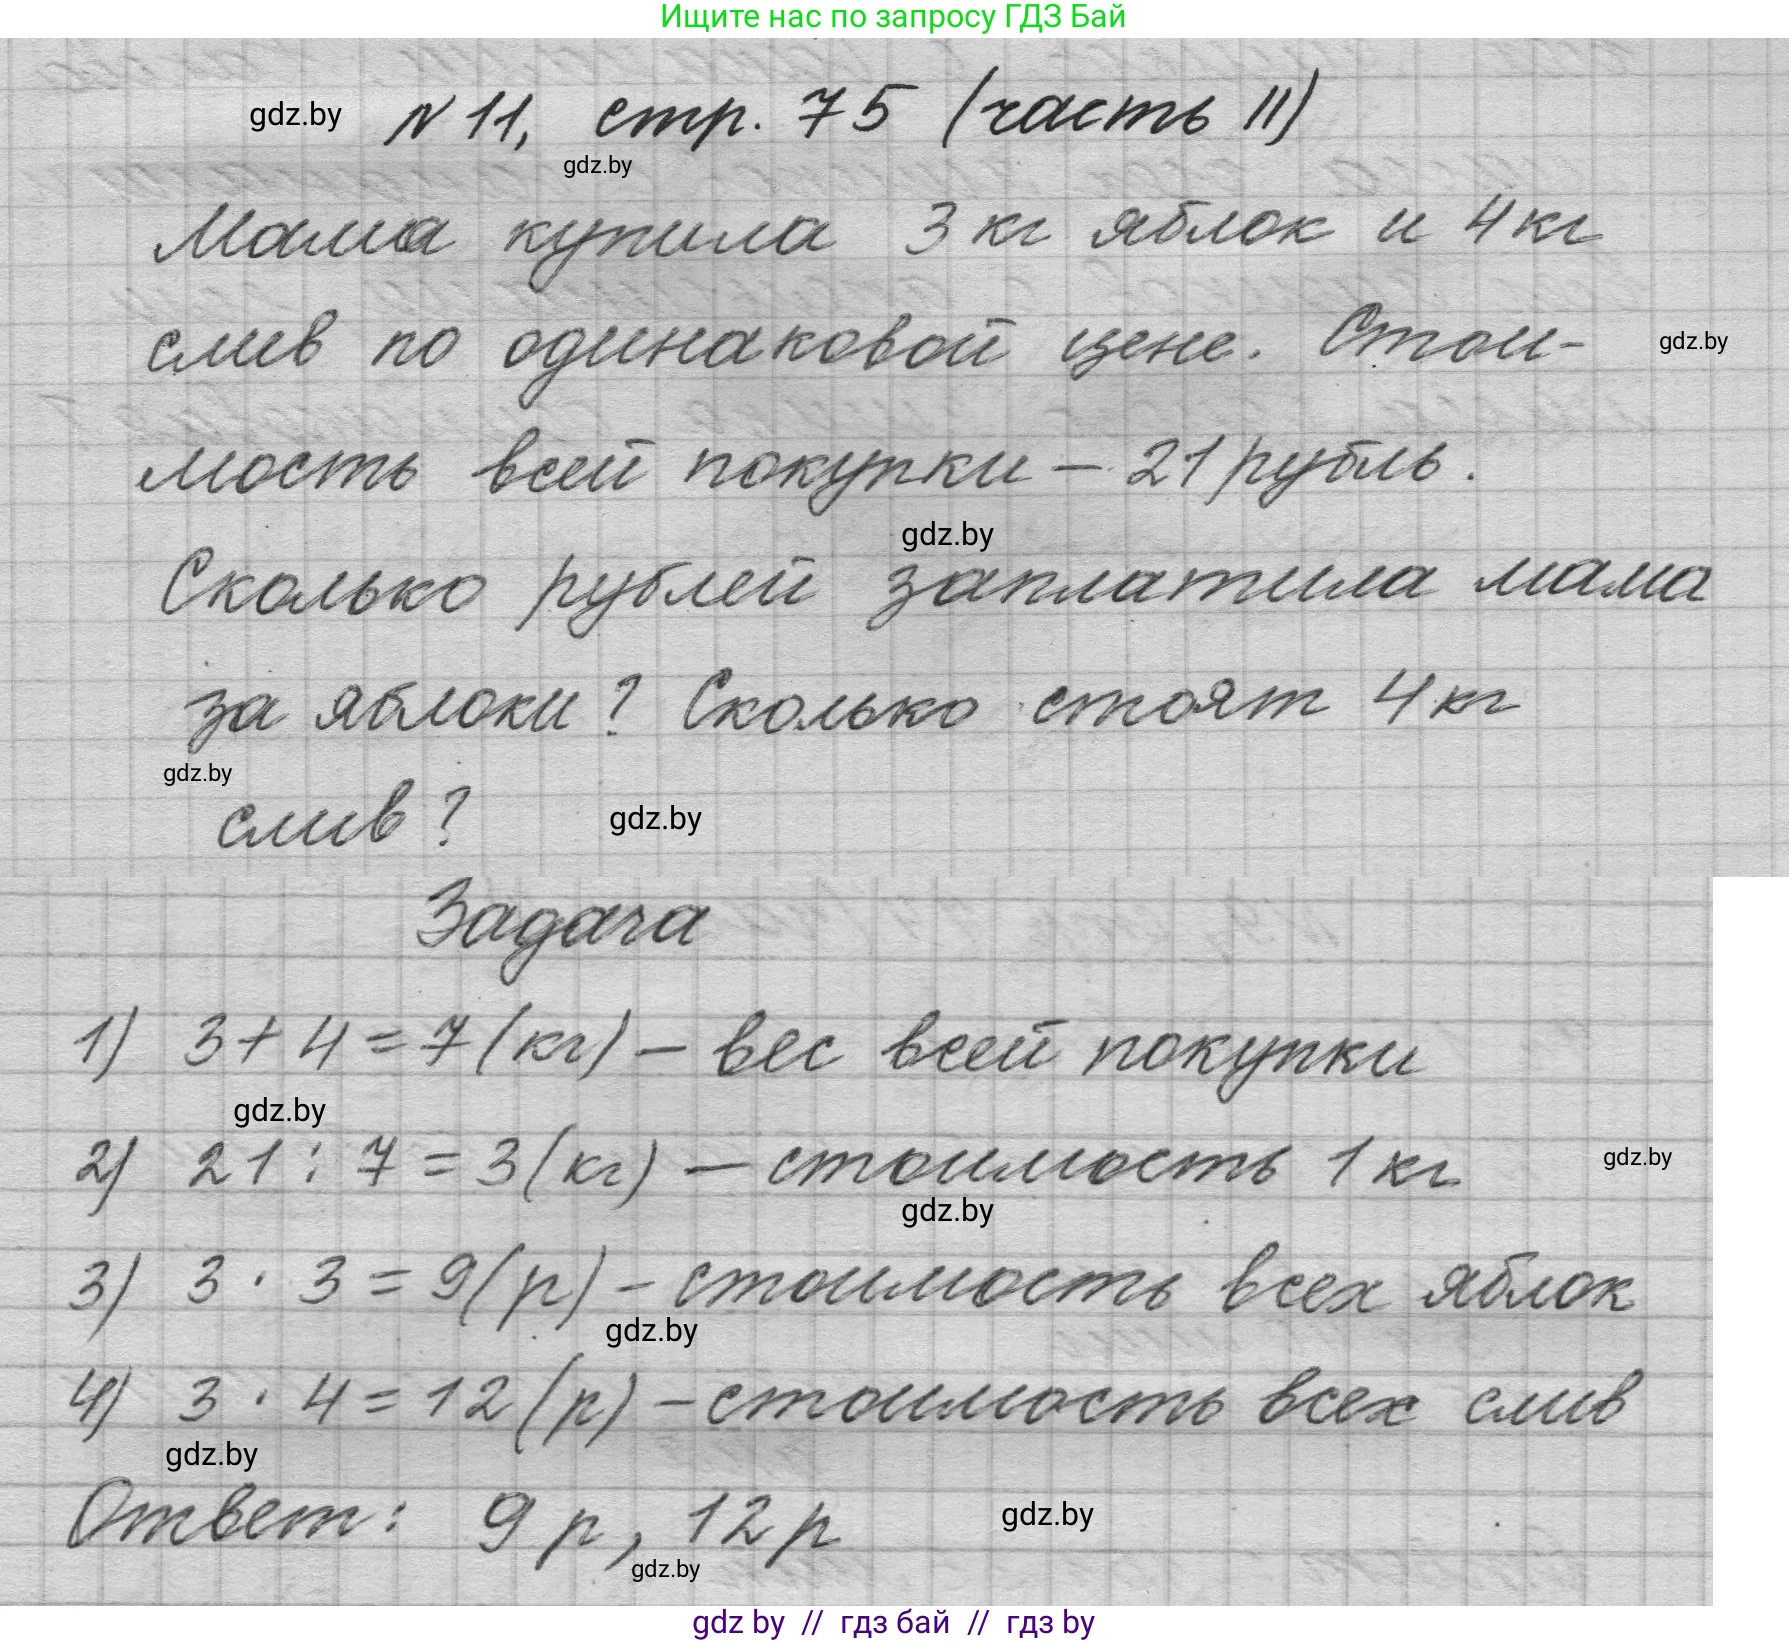 Ищите нас по запросу ГДЗ Бай
gdz.by № 11, стр. 75 (часть II)
gdz.by
Мама купила 3 кг яблок и 4 кг
слив по одинаковой цене. Стои-
gdz.by
мость всей покупки – 21 рубль.
gdz.by
Сколько рублей заплатила мама
за яблоки? Сколько стоят 4 кг
gdz.by
слив?
gdz.by
Задача
1) 3 + 4 = 7 (кг) – вес всей покупки
gdz.by
2) 21 : 7 = 3 (кг) – стоимость 1 кг
gdz.by
gdz.by
3) 3 · 3 = 9 (р) – стоимость всех яблок
gdz.by
4) 3 · 4 = 12 (р) – стоимость всех слив
gdz.by
Ответ: 9 р, 12 р
gdz.by
gdz.by
gdz by // гдз бай // гдз by